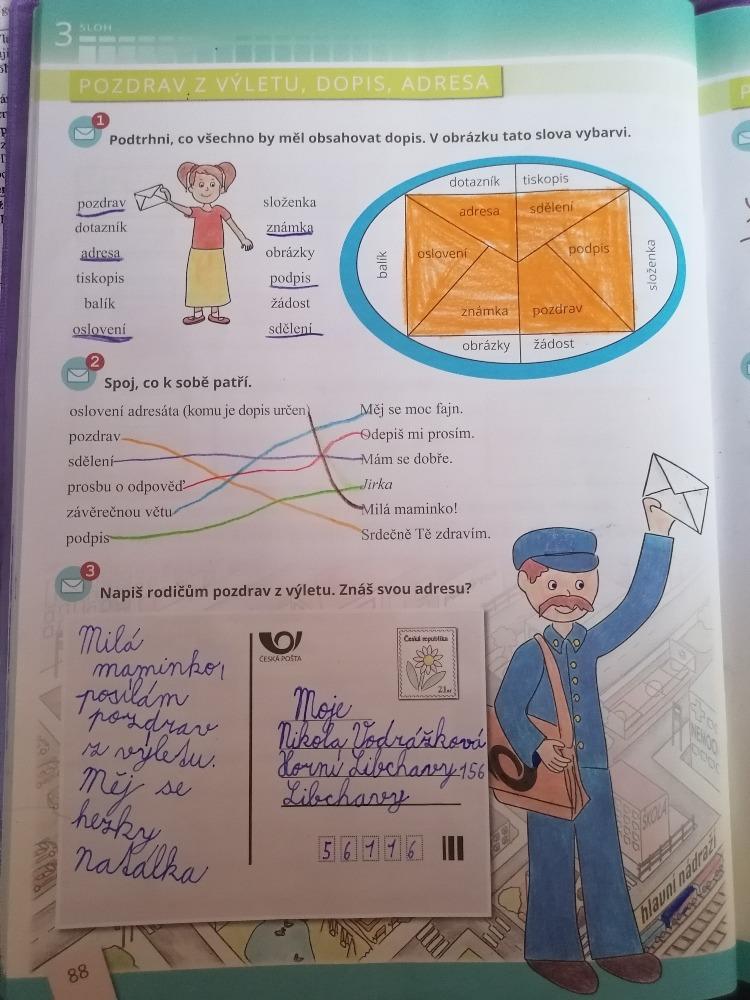 3 SLOH
POZDRAV Z VÝLETU, DOPIS, ADRESA
1
Podtrhni, co všechno by měl obsahovat dopis. V obrázku tato slova vybarvi.
pozdrav
dotazník
adresa
tiskopis
balík
oslovení
složenka
známka
obrázky
podpis
žádost
sdělení
dotazník
tiskopis
adresa
sdělení
balík
oslovení
podpis
složenka
známka
pozdrav
obrázky
žádost
2
Spoj, co k sobě patří.
oslovení adresáta (komu je dopis určen)
pozdrav
sdělení
prosbu o odpověď
závěrečnou větu
podpis
Měj se moc fajn.
Odepiš mi prosím.
Mám se dobře.
Jirka
Milá maminko!
Srdečně Tě zdravím.
3
Napiš rodičům pozdrav z výletu. Znáš svou adresu?
Milá
maminko,
posílám
pozdrav
z výletu.
Měj se
hezky
Natálka
ČESKÁ POŠTA
Česká republika
21
Moje
Nikola Vodrážková
Horní Libchavy 156
Libchavy
5 6 1 1 6
NEMOC
ŠKOLA
hlavní nádraží
88